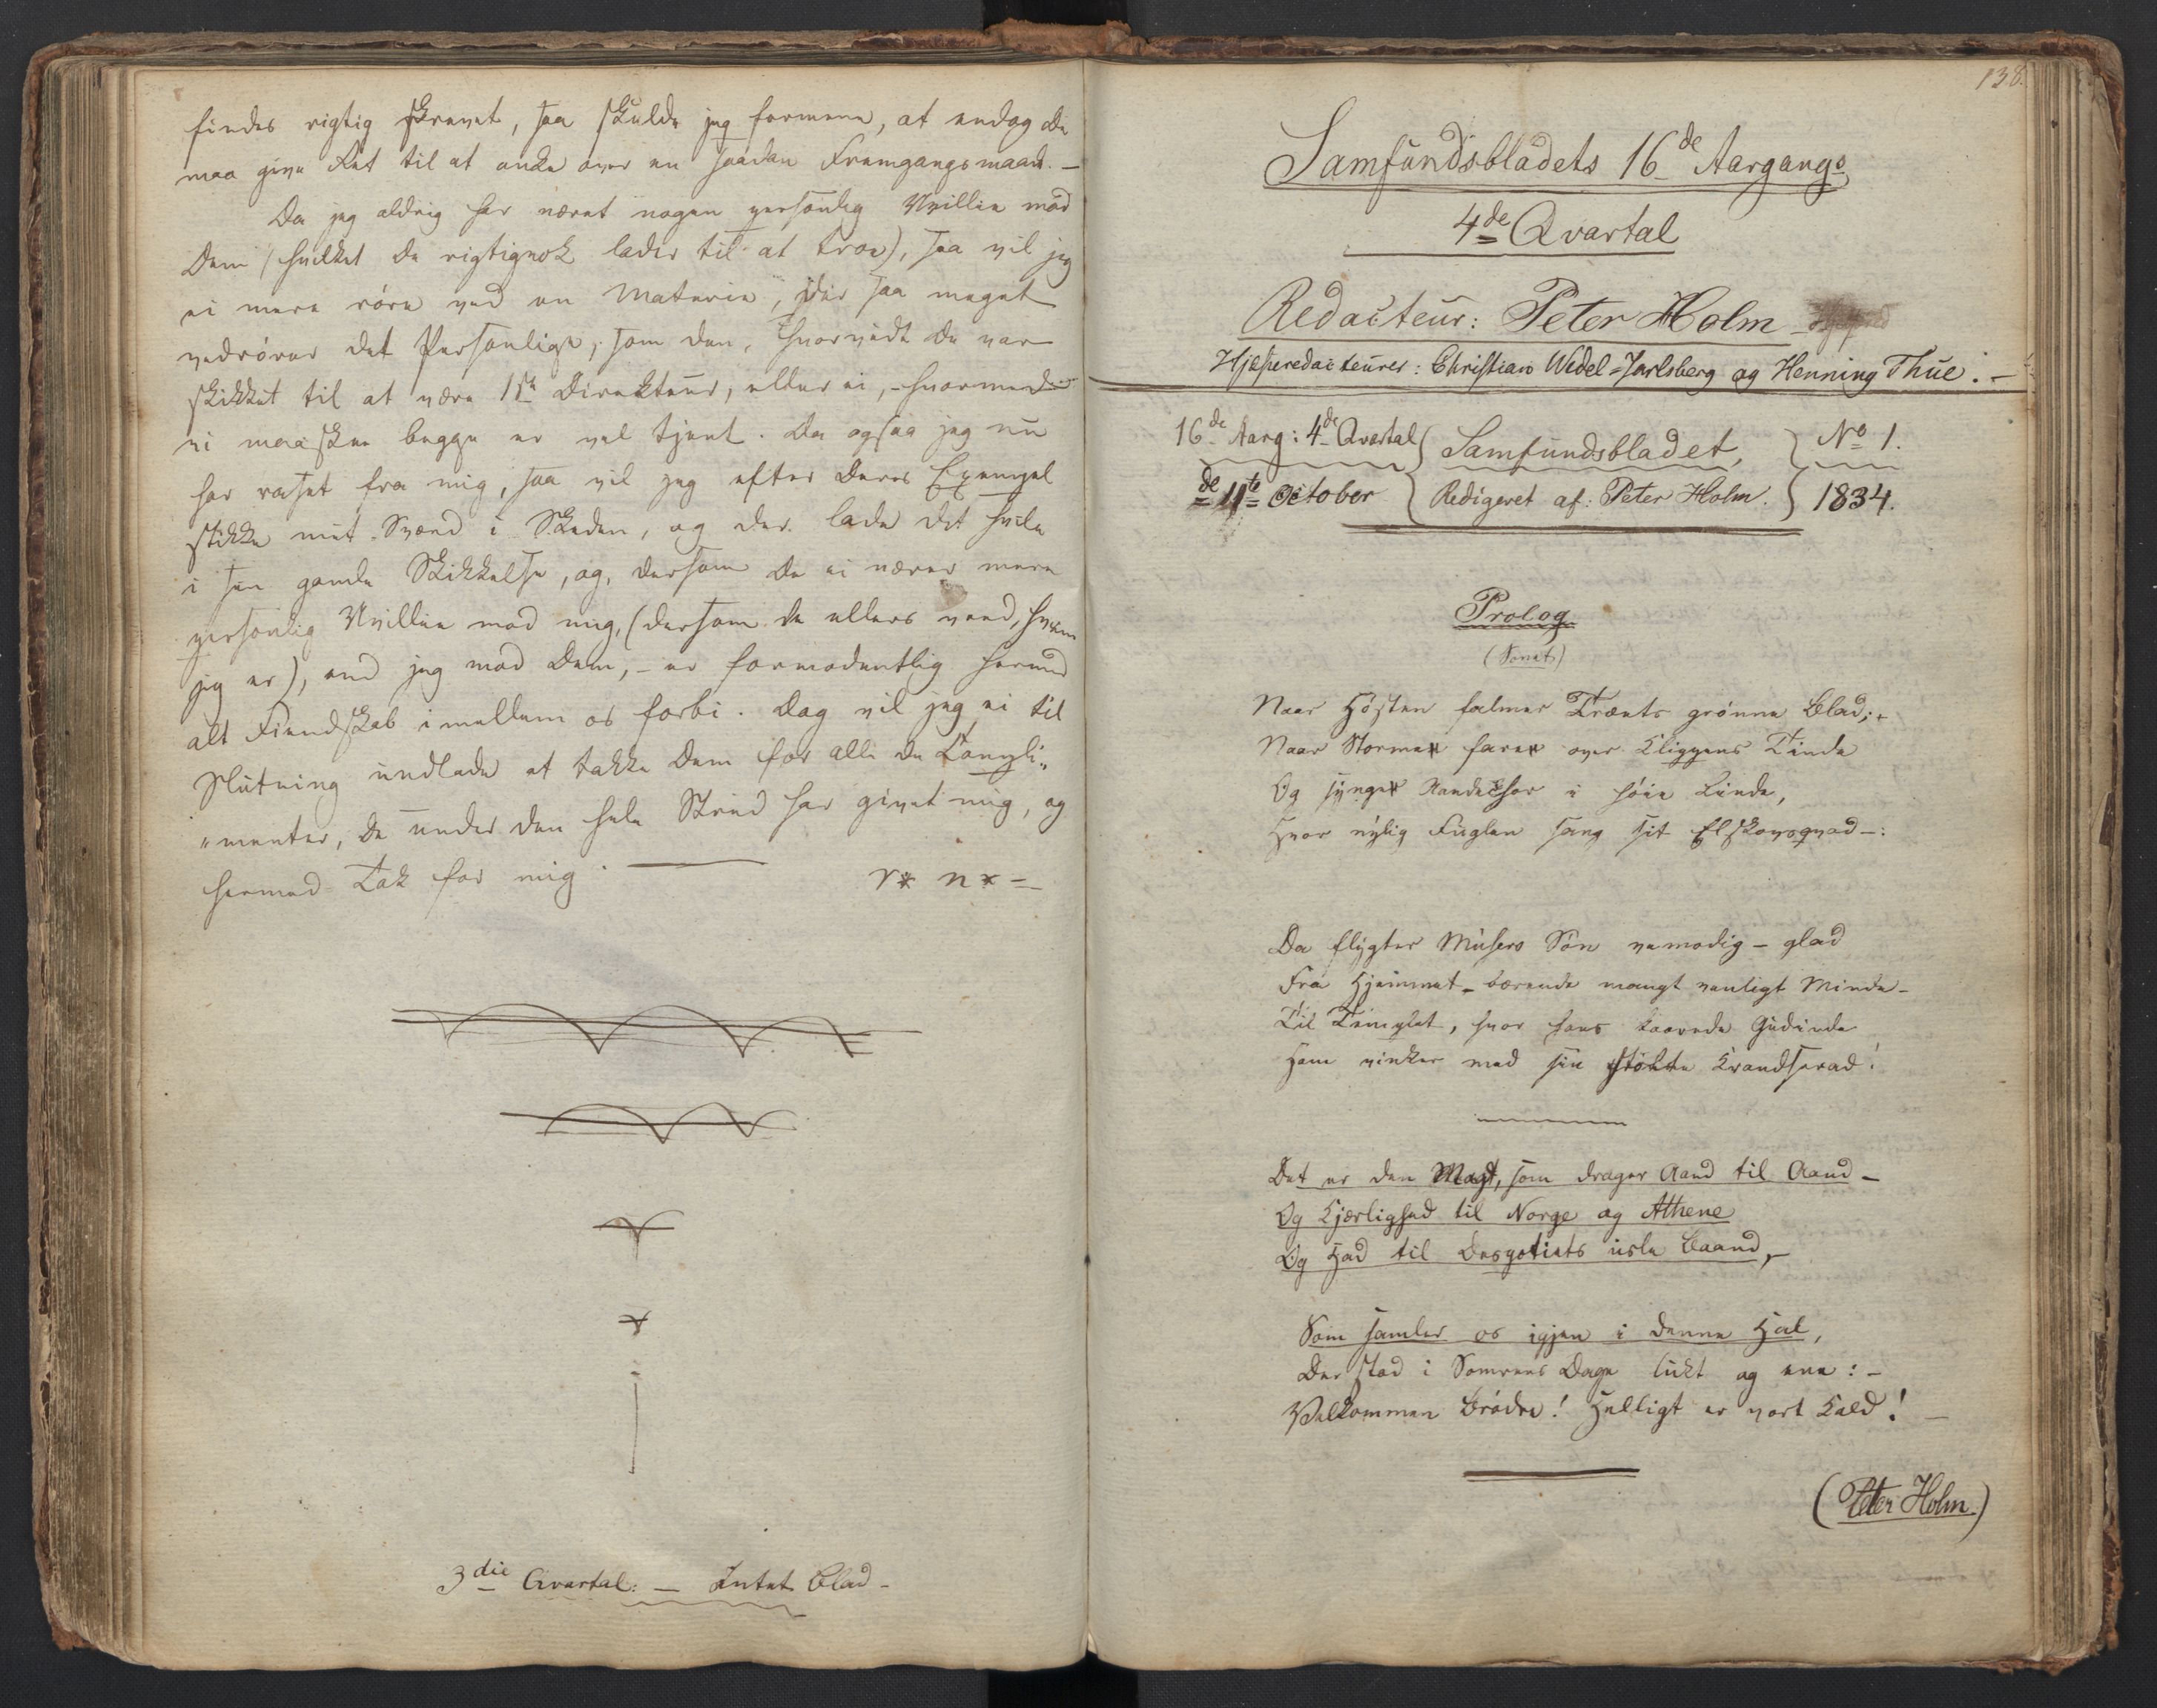 findes rigtig skrevet, saa skulde jeg formene, at endog De
maa give Ret til at anke over en saadan Fremgangsmaade. —
Da jeg aldrig har næret nogen personlig Uvillie mod
Dem (hvilket De rigtignok lader til at troe), saa vil jeg
ei mere røre ved en Materie, der saa meget
vedrører det Personlige, som den, hvorvidt De var
skikket til at være 1ste Direkteur, eller ei, - hvormed
vi maaskee begge er vel tjent. Da ogsaa jeg nu
har raset fra mig, saa vil jeg efter Deres Exempel
stikke mit Sværd i Skeden, og der lade det hvile
i sin gamle Skikkelse, og, dersom De ei nærer mere
personlig Uvillie mod mig, (dersom De ellers veed, hvem
jeg er), end jeg mod Dem, - er formodentlig hermed
alt Fiendskab imellem os forbi. Dog vil jeg ei til
Slutning undlade at takke Dem for alle de Compli„
„menter, De under den hele Strid har givet mig, og
hermed Tak for mig. —
r* n* =
3die Qvartal: — Intet Blad -
138.
Samfundsbladets 16de Aargangs
4de Qvartal
Redacteur: Peter Holm
Hjelperedacteurer: Christian Wedel=Jarlsberg og Henning Thue. –
16de Aarg: 4de Qvartal Samfundsbladet, No 1.
de 11te October Redigeret af: Peter Holm. 1834.
Prolog
(Sonet)
Naar Høsten falmer Træets grønne Blad; -
Naar Stormen farer over Klippens Tinde
Og synger i høie Linde,
Hvor nylig Fuglen sang sit Elskovsqvad -:
Da flygter Musers Søn vemodig - glad
Fra Hjemmet - bærende mangt venligt Minde -
Til Templet, hvor hans kaarede Gudinde
Ham vinker med sin Krandserad!
Det er den Magt, som drager Aand til Aand -
Og Kjærlighed til Norge og Athene
Og Had til Despotiets usle Baand, -
Som samler os igjen i denne Hal,
Der stod i Somrens Dage lukt og ene: -
Velkommen Brødre! Helligt er vort Kald! —
(Peter Holm.)